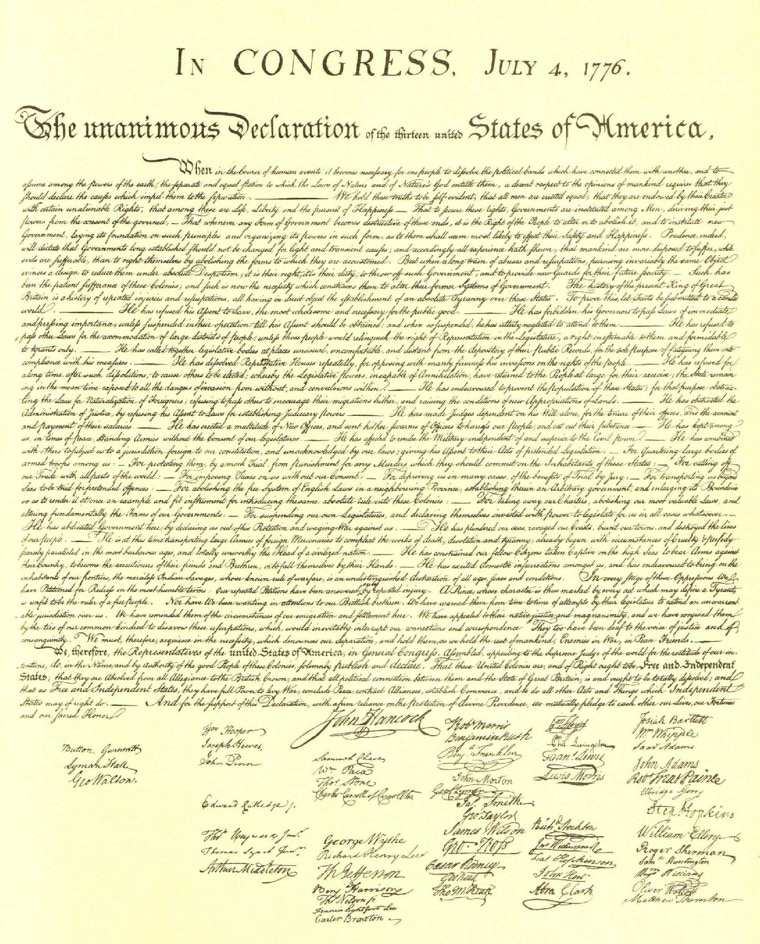 IN CONGRESS, JULY 4, 1776.
The unanimous Declaration of the thirteen united States of America,
When in the Course of human events it becomes necessary for one people to dissolve the political bands which have connected them with another, and to
assume among the powers of the earth, the separate and equal station to which the Laws of Nature and of Nature's God entitle them, a decent respect to the opinions of mankind requires that they
should declare the causes which impel them to the separation. — We hold these truths to be self-evident, that all men are created equal, that they are endowed by their Creator
with certain unalienable Rights, that among these are Life, Liberty and the pursuit of Happiness. — That to secure these rights, Governments are instituted among Men, deriving their just
powers from the consent of the governed, — That whenever any Form of Government becomes destructive of these ends, it is the Right of the People to alter or to abolish it, and to institute new
Government, laying its foundation on such principles and organizing its powers in such form, as to them shall seem most likely to effect their Safety and Happiness. Prudence, indeed,
will dictate that Governments long established should not be changed for light and transient causes; and accordingly all experience hath shewn, that mankind are more disposed to suffer, while
evils are sufferable, than to right themselves by abolishing the forms to which they are accustomed. But when a long train of abuses and usurpations, pursuing invariably the same Object
evinces a design to reduce them under absolute Despotism, it is their right, it is their duty, to throw off such Government, and to provide new Guards for their future security. — Such has
been the patient sufferance of these Colonies; and such is now the necessity which constrains them to alter their former Systems of Government. The history of the present King of Great
Britain is a history of repeated injuries and usurpations, all having in direct object the establishment of an absolute Tyranny over these States. To prove this, let Facts be submitted to a candid
world. — He has refused his Assent to Laws, the most wholesome and necessary for the public good. — He has forbidden his Governors to pass Laws of immediate
and pressing importance, unless suspended in their operation till his Assent should be obtained; and when so suspended, he has utterly neglected to attend to them. — He has refused to
pass other Laws for the accommodation of large districts of people, unless those people would relinquish the right of Representation in the Legislature, a right inestimable to them and formidable
to tyrants only. — He has called together legislative bodies at places unusual, uncomfortable, and distant from the depository of their Public Records, for the sole purpose of fatiguing them into
compliance with his measures. — He has dissolved Representative Houses repeatedly, for opposing with manly firmness his invasions on the rights of the people. — He has refused for
a long time, after such dissolutions, to cause others to be elected; whereby the Legislative powers, incapable of Annihilation, have returned to the People at large for their exercise; the State remain-
ing in the mean time exposed to all the dangers of invasion from without, and convulsions within. — He has endeavoured to prevent the population of these States; for that purpose obstruc-
ting the Laws for Naturalization of Foreigners; refusing to pass others to encourage their migrations hither, and raising the conditions of new Appropriations of Lands. — He has obstructed the
Administration of Justice, by refusing his Assent to Laws for establishing Judiciary powers. — He has made Judges dependent on his Will alone, for the tenure of their offices, and the amount
and payment of their salaries. — He has erected a multitude of New Offices, and sent hither swarms of Officers to harrass our people, and eat out their substance. — He has kept among
us, in times of peace, Standing Armies without the Consent of our legislatures. — He has affected to render the Military independent of and superior to the Civil power. — He has combined
with others to subject us to a jurisdiction foreign to our constitution, and unacknowledged by our laws; giving his Assent to their Acts of pretended Legislation: — For Quartering large bodies of
armed troops among us: — For protecting them, by a mock Trial, from punishment for any Murders which they should commit on the Inhabitants of these States: — For cutting off
our Trade with all parts of the world: — For imposing Taxes on us without our Consent: — For depriving us in many cases, of the benefits of Trial by Jury: — For transporting us beyond
Seas to be tried for pretended offences — For abolishing the free System of English Laws in a neighbouring Province, establishing therein an Arbitrary government, and enlarging its Boundaries
so as to render it at once an example and fit instrument for introducing the same absolute rule into these Colonies: — For taking away our Charters, abolishing our most valuable Laws, and
altering fundamentally the Forms of our Governments: — For suspending our own Legislatures, and declaring themselves invested with power to legislate for us in all cases whatsoever. —
He has abdicated Government here, by declaring us out of his Protection and waging War against us. — He has plundered our seas, ravaged our Coasts, burnt our towns, and destroyed the lives
of our people. — He is at this time transporting large Armies of foreign Mercenaries to compleat the works of death, desolation and tyranny, already begun with circumstances of Cruelty & perfidy
scarcely paralleled in the most barbarous ages, and totally unworthy the Head of a civilized nation. — He has constrained our fellow Citizens taken Captive on the high Seas to bear Arms against
their Country, to become the executioners of their friends and Brethren, or to fall themselves by their Hands. — He has excited domestic insurrections amongst us, and has endeavoured to bring on the
inhabitants of our frontiers, the merciless Indian Savages, whose known rule of warfare, is an undistinguished destruction of all ages, sexes and conditions. In every stage of these Oppressions We
have Petitioned for Redress in the most humble terms: Our repeated Petitions have been answered only by repeated injury. A Prince, whose character is thus marked by every act which may define a Tyrant,
is unfit to be the ruler of a free people. Nor have We been wanting in attentions to our Brittish brethren. We have warned them from time to time of attempts by their legislature to extend an unwarrant-
able jurisdiction over us. We have reminded them of the circumstances of our emigration and settlement here. We have appealed to their native justice and magnanimity, and we have conjured them
by the ties of our common kindred to disavow these usurpations, which, would inevitably interrupt our connections and correspondence. They too have been deaf to the voice of justice and of
consanguinity. We must, therefore, acquiesce in the necessity, which denounces our Separation, and hold them, as we hold the rest of mankind, Enemies in War, in Peace Friends. —
We, therefore, the Representatives of the united States of America, in General Congress, Assembled, appealing to the Supreme Judge of the world for the rectitude of our in-
tentions, do, in the Name, and by Authority of the good People of these Colonies, solemnly publish and declare, That these United Colonies are, and of Right ought to be Free and Independent
States; that they are Absolved from all Allegiance to the British Crown, and that all political connection between them and the State of Great Britain, is and ought to be totally dissolved; and
that as Free and Independent States, they have full Power to levy War, conclude Peace, contract Alliances, establish Commerce, and to do all other Acts and Things which Independent
States may of right do. — And for the support of this Declaration, with a firm reliance on the protection of divine Providence, we mutually pledge to each other our Lives, our Fortunes
and our sacred Honor.
Button Gwinnett
Lyman Hall
Geo Walton.
Wm Hooper
Joseph Hewes,
John Penn
Edward Rutledge /.
Thos Heyward Junr.
Thomas Lynch Junr.
Arthur Middleton
John Hancock
Samuel Chase
Wm Paca
Thos Stone
Charles Carroll of Carrollton
George Wythe
Richard Henry Lee
Th Jefferson
Benj Harrison
Thos Nelson jr.
Francis Lightfoot Lee
Carter Braxton
Robt Morris
Benjamin Rush
Benj. Franklin
John Morton
Geo Clymer
Jas. Smith
Geo. Taylor
James Wilson
Geo. Ross
Caesar Rodney
Geo Read
Tho M:Kean
Wm Floyd
Phil. Livingston
Frans. Lewis
Lewis Morris
Richd. Stockton
Jno Witherspoon
Fras. Hopkinson
John Hart
Abra Clark
Josiah Bartlett
Wm Whipple
Saml Adams
John Adams
Robt Treat Paine
Elbridge Gerry
Step. Hopkins
William Ellery
Roger Sherman
Saml Huntington
Wm Williams
Oliver Wolcott
Matthew Thornton